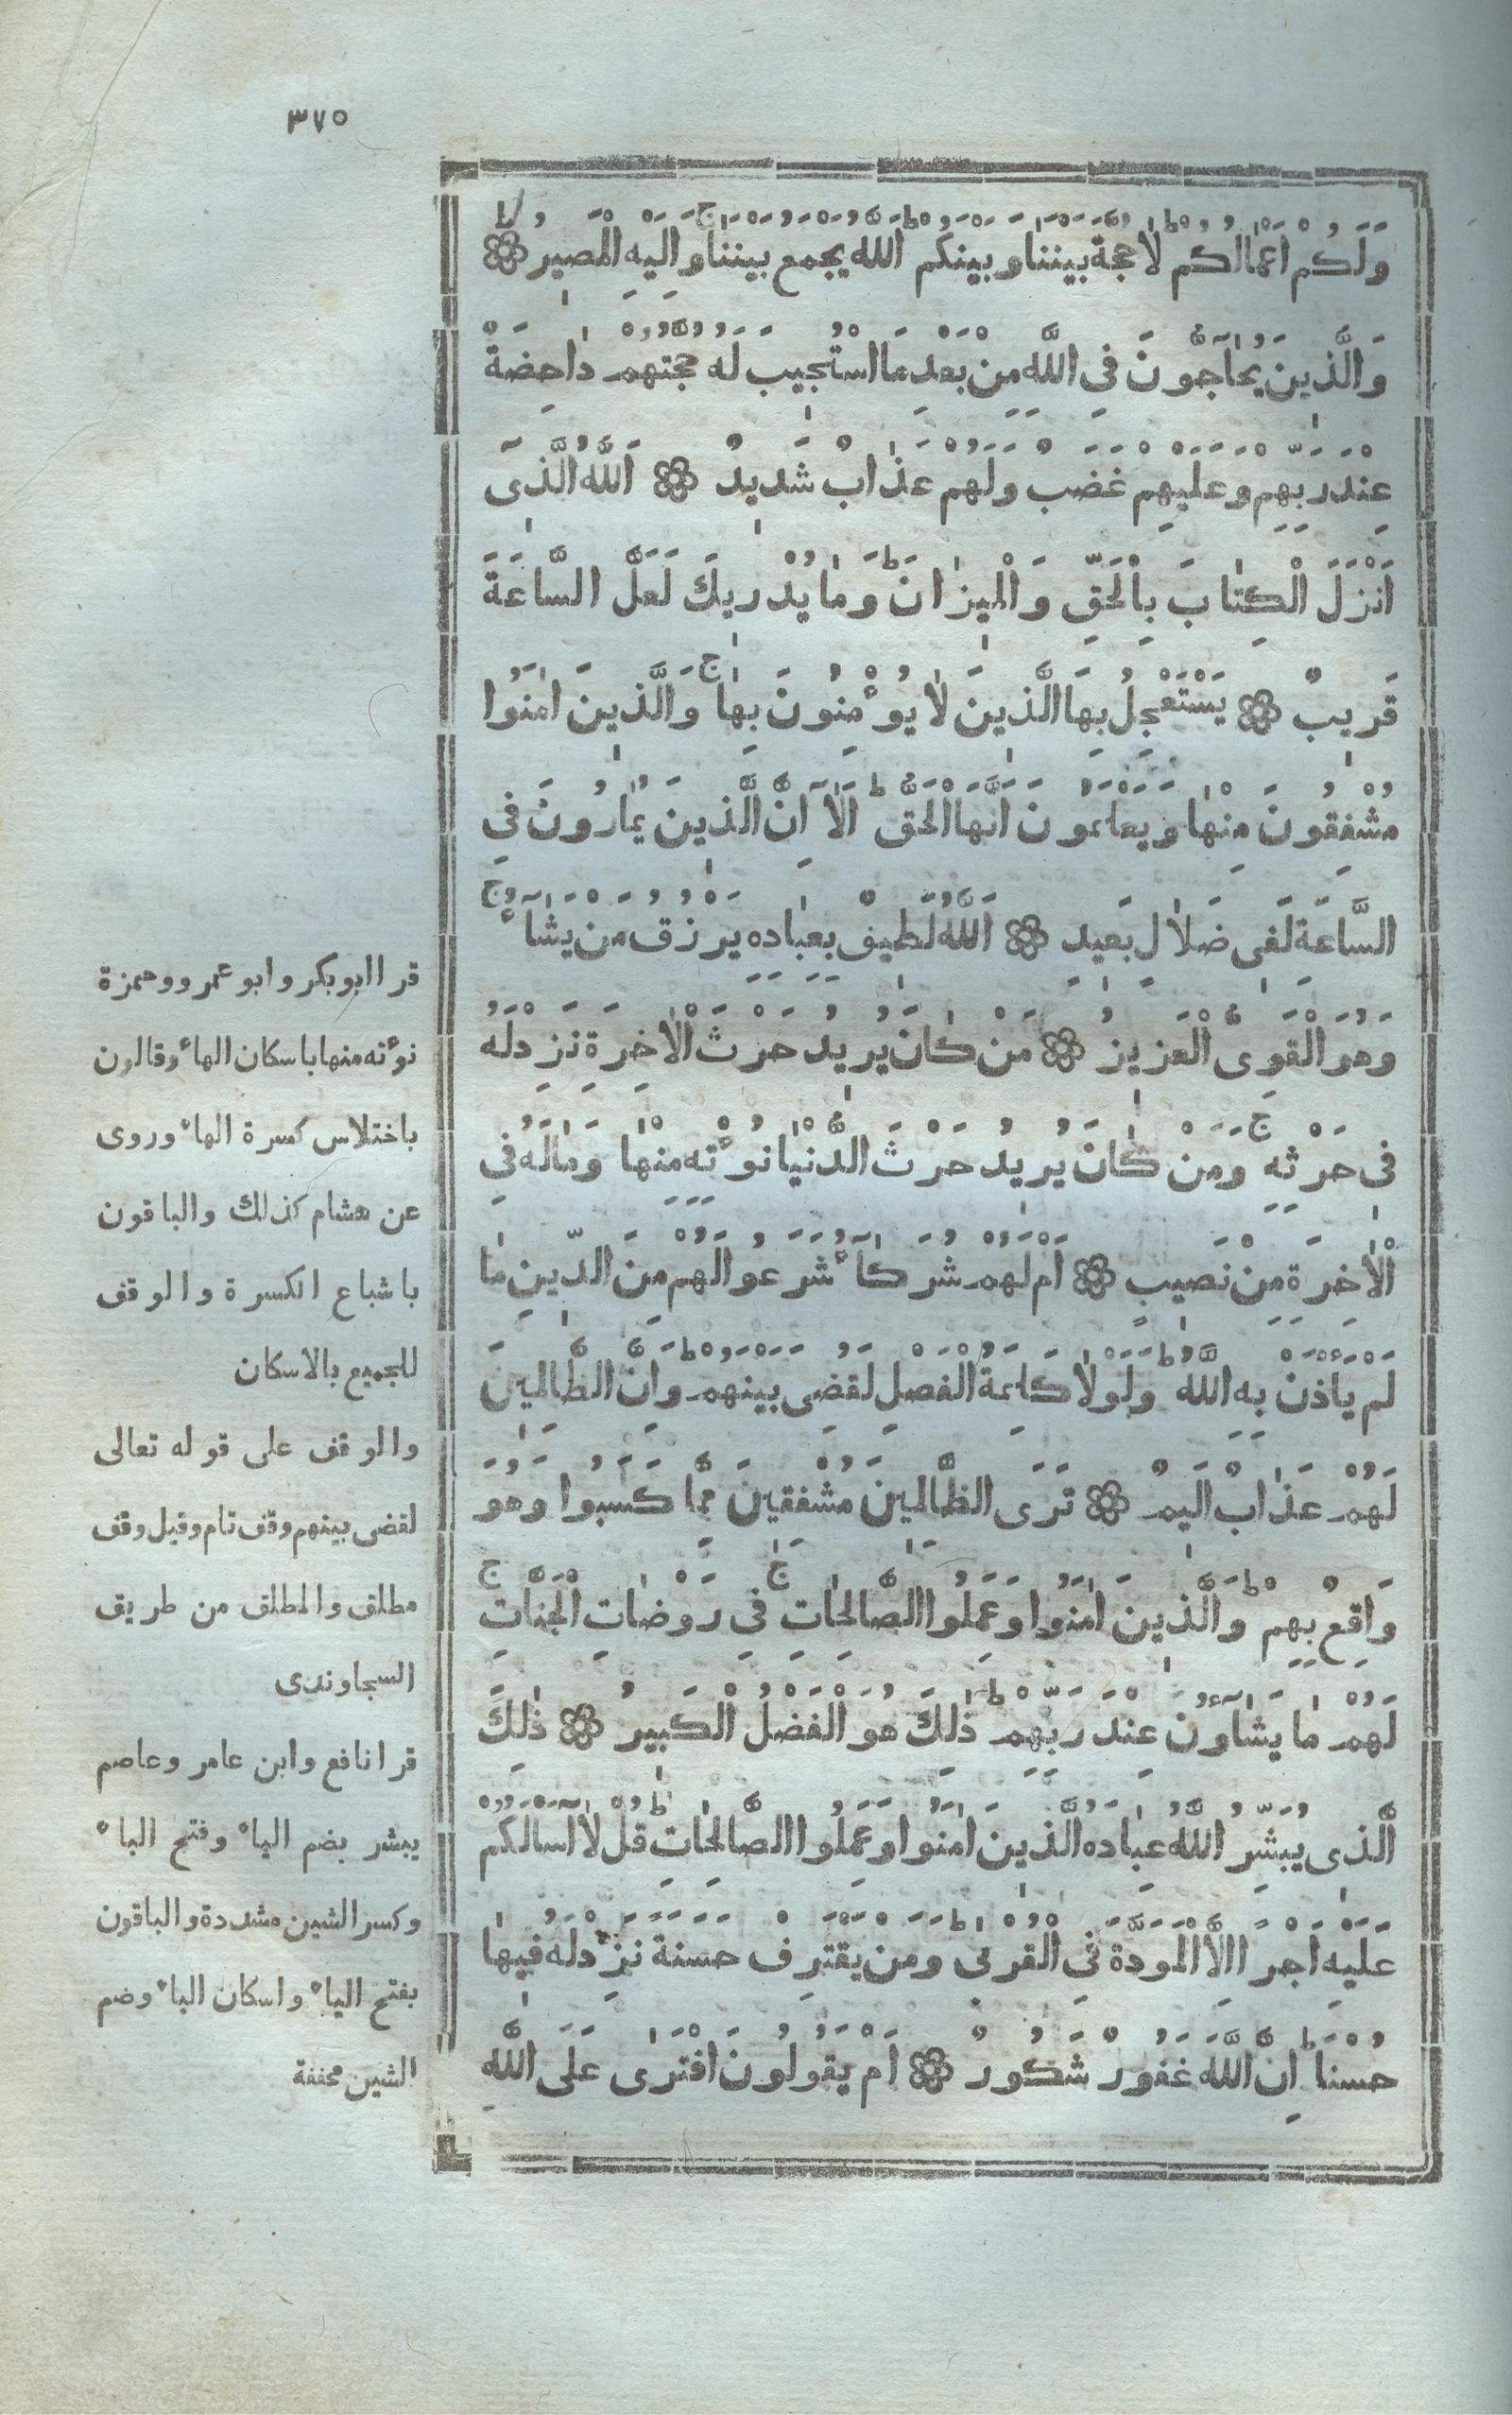 ٣٧٥
وَلَكُمْ اَعْمَالُكُمْ لَا حُجَّةَ بَيْنَنَا وَبَيْنَكُمُ اللّٰهُ يَجْمَعُ بَيْنَنَا وَاِلَيْهِ الْمَصِيرُ
وَالَّذِينَ يُحَاجُّونَ فِى اللّٰهِ مِنْ بَعْدِ مَا اسْتُجِيبَ لَهُ حُجَّتُهُمْ دَاحِضَةٌ
عِنْدَ رَبِّهِمْ وَعَلَيْهِمْ غَضَبٌ وَلَهُمْ عَذَابٌ شَدِيدٌ اَللّٰهُ الَّذِىٓ
اَنْزَلَ الْكِتَابَ بِالْحَقِّ وَالْمِيزَانَ وَمَا يُدْرِيكَ لَعَلَّ السَّاعَةَ
قَرِيبٌ يَسْتَعْجِلُ بِهَا الَّذِينَ لَا يُؤْمِنُونَ بِهَا وَالَّذِينَ اٰمَنُوا
مُشْفِقُونَ مِنْهَا وَيَعْلَمُونَ اَنَّهَا الْحَقُّ اَلَآ اِنَّ الَّذِينَ يُمَارُونَ فِى
السَّاعَةِ لَفِى ضَلَالٍ بَعِيدٍ اَللّٰهُ لَطِيفٌ بِعِبَادِهِ يَرْزُقُ مَنْ يَشَآءُ
وَهُوَ الْقَوِىُّ الْعَزِيزُ مَنْ كَانَ يُرِيدُ حَرْثَ الْاٰخِرَةِ نَزِدْ لَهُ
فِى حَرْثِهِ وَمَنْ كَانَ يُرِيدُ حَرْثَ الدُّنْيَا نُؤْتِهِ مِنْهَا وَمَا لَهُ فِى
الْاٰخِرَةِ مِنْ نَصِيبٍ اَمْ لَهُمْ شُرَكَآءُ شَرَعُوا لَهُمْ مِنَ الدِّينِ مَا
لَمْ يَاْذَنْ بِهِ اللّٰهُ وَلَوْلَا كَلِمَةُ الْفَصْلِ لَقُضِىَ بَيْنَهُمْ وَاِنَّ الظَّالِمِينَ
لَهُمْ عَذَابٌ اَلِيمٌ تَرَى الظَّالِمِينَ مُشْفِقِينَ مِمَّا كَسَبُوا وَهُوَ
وَاقِعٌ بِهِمْ وَالَّذِينَ اٰمَنُوا وَعَمِلُوا الصَّالِحَاتِ فِى رَوْضَاتِ الْجَنَّاتِ
لَهُمْ مَا يَشَآؤُنَ عِنْدَ رَبِّهِمْ ذٰلِكَ هُوَ الْفَضْلُ الْكَبِيرُ ذٰلِكَ
الَّذِى يُبَشِّرُ اللّٰهُ عِبَادَهُ الَّذِينَ اٰمَنُوا وَعَمِلُوا الصَّالِحَاتِ قُلْ لَآ اَسْاَلُكُمْ
عَلَيْهِ اَجْرًا اِلَّا الْمَوَدَّةَ فِى الْقُرْبٰى وَمَنْ يَقْتَرِفْ حَسَنَةً نَزِدْ لَهُ فِيهَا
حُسْنًا اِنَّ اللّٰهَ غَفُورٌ شَكُورٌ اَمْ يَقُولُونَ افْتَرٰى عَلَى اللّٰهِ
قرا ابو بكر وابو عمرو وحمزة
نوٴته منها باسكان الهاء وقالون
باختلاس كسرة الهاء وروى
عن هشام كذلك والباقون
باشباع الكسرة والوقف
للجميع بالاسكان
والوقف على قوله تعالى
لقضى بينهم وقف تام وقيل وقف
مطلق والمطلق من طريق
السجاوندى
قرا نافع وابن عامر وعاصم
يبشر بضم الياء وفتح الباء
وكسر الشين مشددة والباقون
بفتح الياء واسكان الباء وضم
الشين مخففة